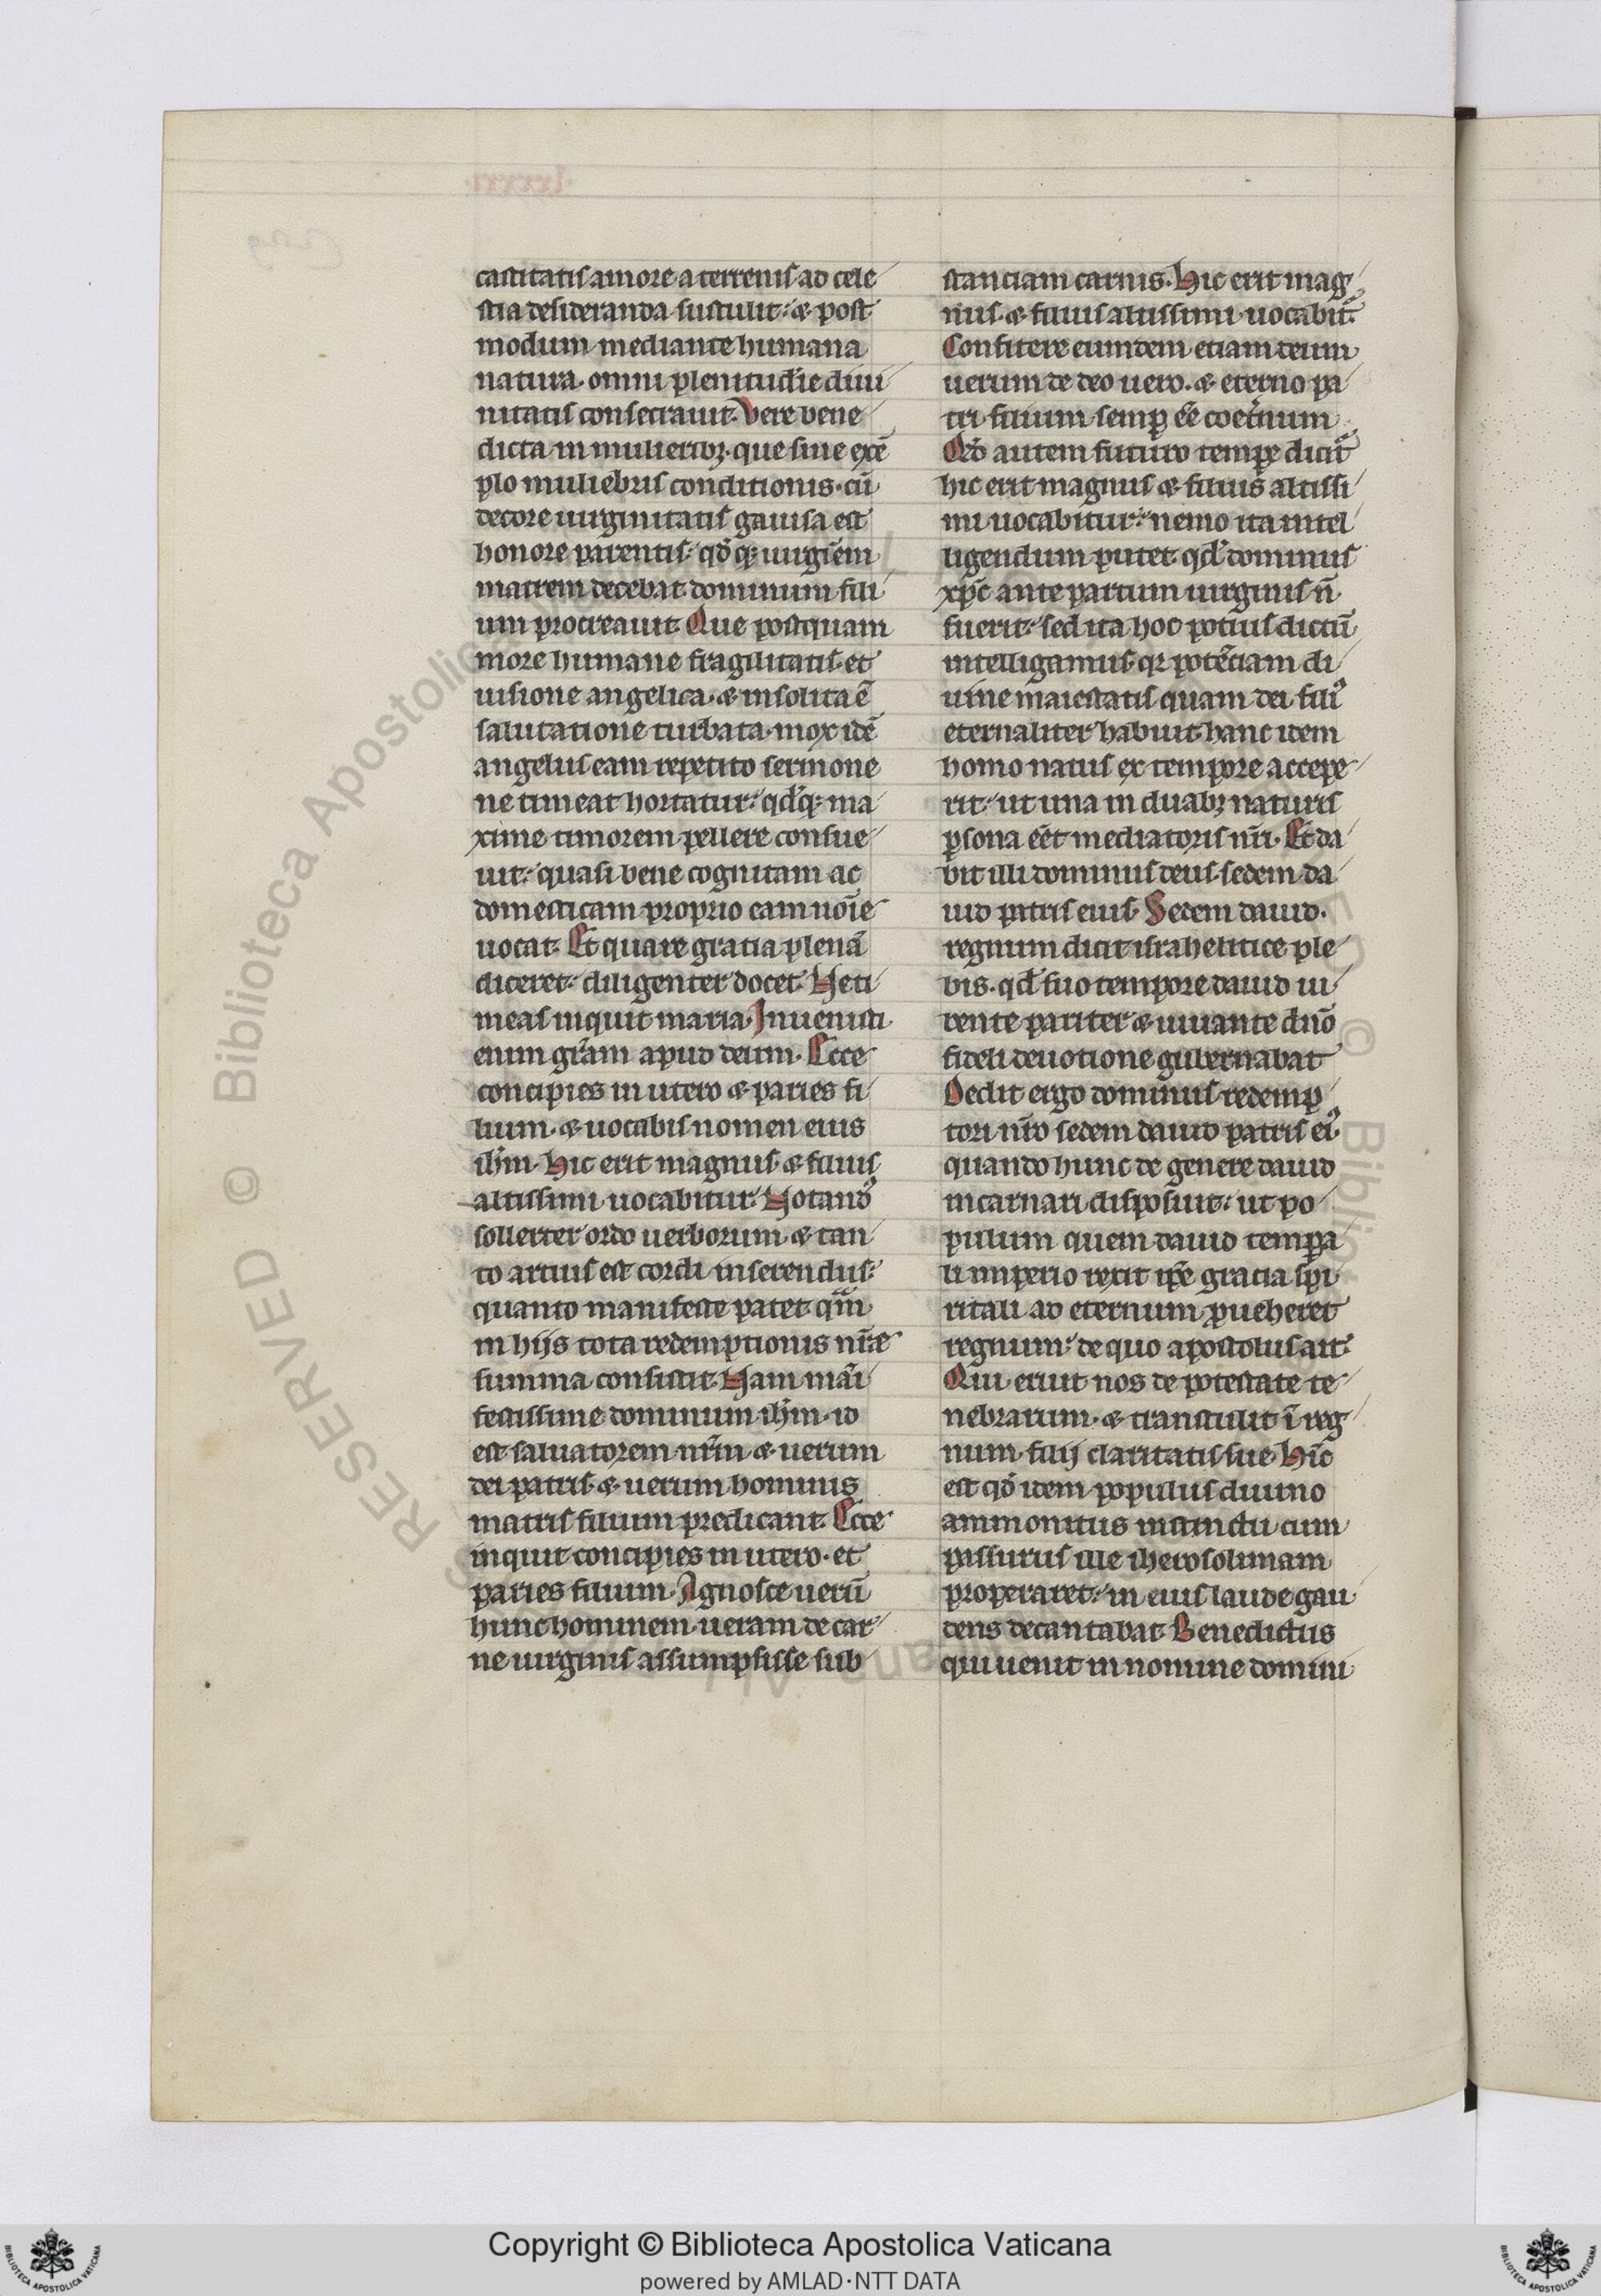 castitatis amore a terrenis ad cele
stia desideranda sustulit. & post
modum mediante humana
natura. omni plenitudīe diui
nitatis consecrauit. Vere bene
dicta in mulieribȝ. que sine exē
plo muliebris conditionis. cū
decore uirginitatis gauisa est
honore parentis. qđ qꝫ uirgīem
matrem decebat. dominum fili
um procreauit. Que postquam
more humane fragilitatis. et
uisione angelica. & insolita ē
salutatione turbata. mox idē
angelus eam repetito sermone
ne timeat hortatur. qđ qꝫ ma
xime timorem pellere consue
uit. quasi bene cognitam ac
domesticam proprio eam noīe
uocat. Et quare gratia plenā
diceret. diligenter docet. Ne ti
meas inquit maria. Inuenisti
enim grām apud deum. Ecce
concipies in utero & paries fi
lium. & uocabis nomen eius
ihm̄. Hic erit magnus. & filius
altissimi uocabitur. Notand⁹
sollerter ordo uerborum. & tan
to artius est cordi inserendus.
quanto manifeste patet qm̄
in hijs tota redemptionis nr̄ae
summa consistit. Nam māi
festissime dominum ihm̄. id
est saluatorem nr̄m & uerum
dei patris. & uerum hominis
matris filium predicant. Ecce
inquit concipies in utero. et
paries filium. Agnosce uerū
hunc hominem. ueram de car
ne uirginis assumpsisse sub
stanciam carnis. Hic erit mag
nus. & filius altissimi uocabit᷑.
Confitere eumdem etiam deum
uerum de deo uero. & eterno pa
tri filium semꝑ eē coet̄num
Qđ autem futuro tempꝰe dicit᷑
hic erit magnus & filius altissi
mi uocabitur. nemo ita intel
ligendum putet. qđ dominus
xp̄c ante partum uirginis n̄
fuerit. sed ita hoc potius dictū
intelligamus. qꝛ potēciam di
uine maiestatis quam dei fili⁹
eternaliter habuit. hanc idem
homo natus ex tempore accepe
rit. ut una in duabȝ naturis
ꝑsona eēt mediatoris nr̄i. Et da
bit illi dominus deus. sedem da
uid patris eius. Sedem dauid.
regnum dicit israhelitice ple
bis. qđ suo tempore dauid iu
bente pariter & iuuante dn̄o
fideli deuotione gubernabat
Dedit ergo dominus redemp
tori nr̄o sedem dauid patris ei⁹
quando hunc de genere dauid
incarnari disposuit. ut po
pulum quem dauid tempꝰa
li imperio rexit ip̄e gracia sp̄i
ritali ad eternum ꝓueheret
regnum. de quo apostolus ait.
Qui eruit nos de potestate te
nebrarum. & transtulit ī reg
num filij claritatis sue. Hīc
est qđ idem populus diuino
ammonitus instinctu cum
passurus ille iherosolimam
properaret. in eius laude gau
dens decantabat. Benedictus
qui uenit in nomine domini
Copyright © Biblioteca Apostolica Vaticana
powered by AMLAD·NTT DATA